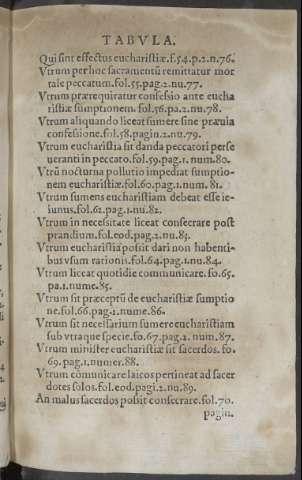 TABVLA.
Qui sint effectus eucharistiæ.f.54.p.2.n.76.
Vtrum per hoc sacramentũ remittatur mor
tale peccatum.fol.55.pag.2.nu.77.
Vtrum prærequiratur confessio ante eucha
ristiæ sumptionem.fol.56.pa.2.nu.78.
Vtrum aliquando liceat sumere sine præuia
confessione.fol.58.pagin.2.nu.79.
Vtrum eucharistia sit danda peccatori perse
ueranti in peccato.fol.59.pag.1.num.80.
Vtrũ nocturna pollutio impediat sumptio-
nem eucharistiæ.fol.60.pag.1.num.81.
Vtrum sumens eucharistiam debeat esse ie-
iunus.fol.62.pag.1.nu.82.
Vtrum in necessitate liceat consecrare post
prandium.fol.eod.pag.2.nu.83.
Vtrum eucharistia possit dari non habenti-
bus vsum rationis.fol.64.pag.1.nu.84.
Vtrum liceat quotidie communicare.fo.65.
pa.1.nume.85.
Vtrum sit præceptũ de eucharistiæ sumptio
ne.fol.66.pag.2.nume.86.
Vtrum sit necessarium sumere eucharistiam
sub vtraque specie.fo.67.pag.2.num.87.
Vtrum minister eucharistiæ sit sacerdos.fo.
69.pag.1.numer.88.
Vtrum cõmunicare laicos pertineat ad sacer
dotes solos.fol.eod.pagi.2.nu.89.
An malus sacerdos possit consecrare.fol.70.
pagin.